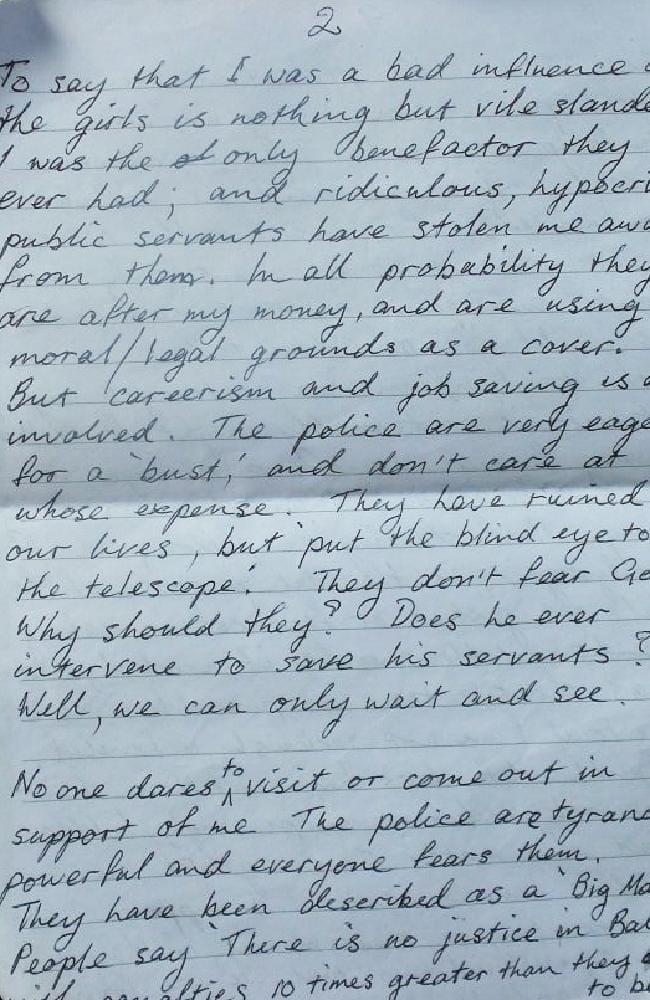 2
To say that I was a bad influence
the girls is nothing but vile slande
I was the of only benefactor they
ever had; and ridiculous, hypocri
public servants have stolen me awa
from them. In all probability they
are after my money, and are using
moral/legal grounds as a cover.
But careerism and job saving is a
involved. The police are very eage
for a 'bust,' and don't care at
whose expense. They have ruined
our lives, but 'put the blind eye to
the telescope.' They don't fear Go
Why should they? Does he ever
intervene to save his servants?
Well, we can only wait and see.
No one dares to visit or come out in
support of me The police are tyrann
powerful and everyone fears them.
They have been described as a 'Big Ma
People say 'There is no justice in Bal
penalties 10 times greater than they
to be